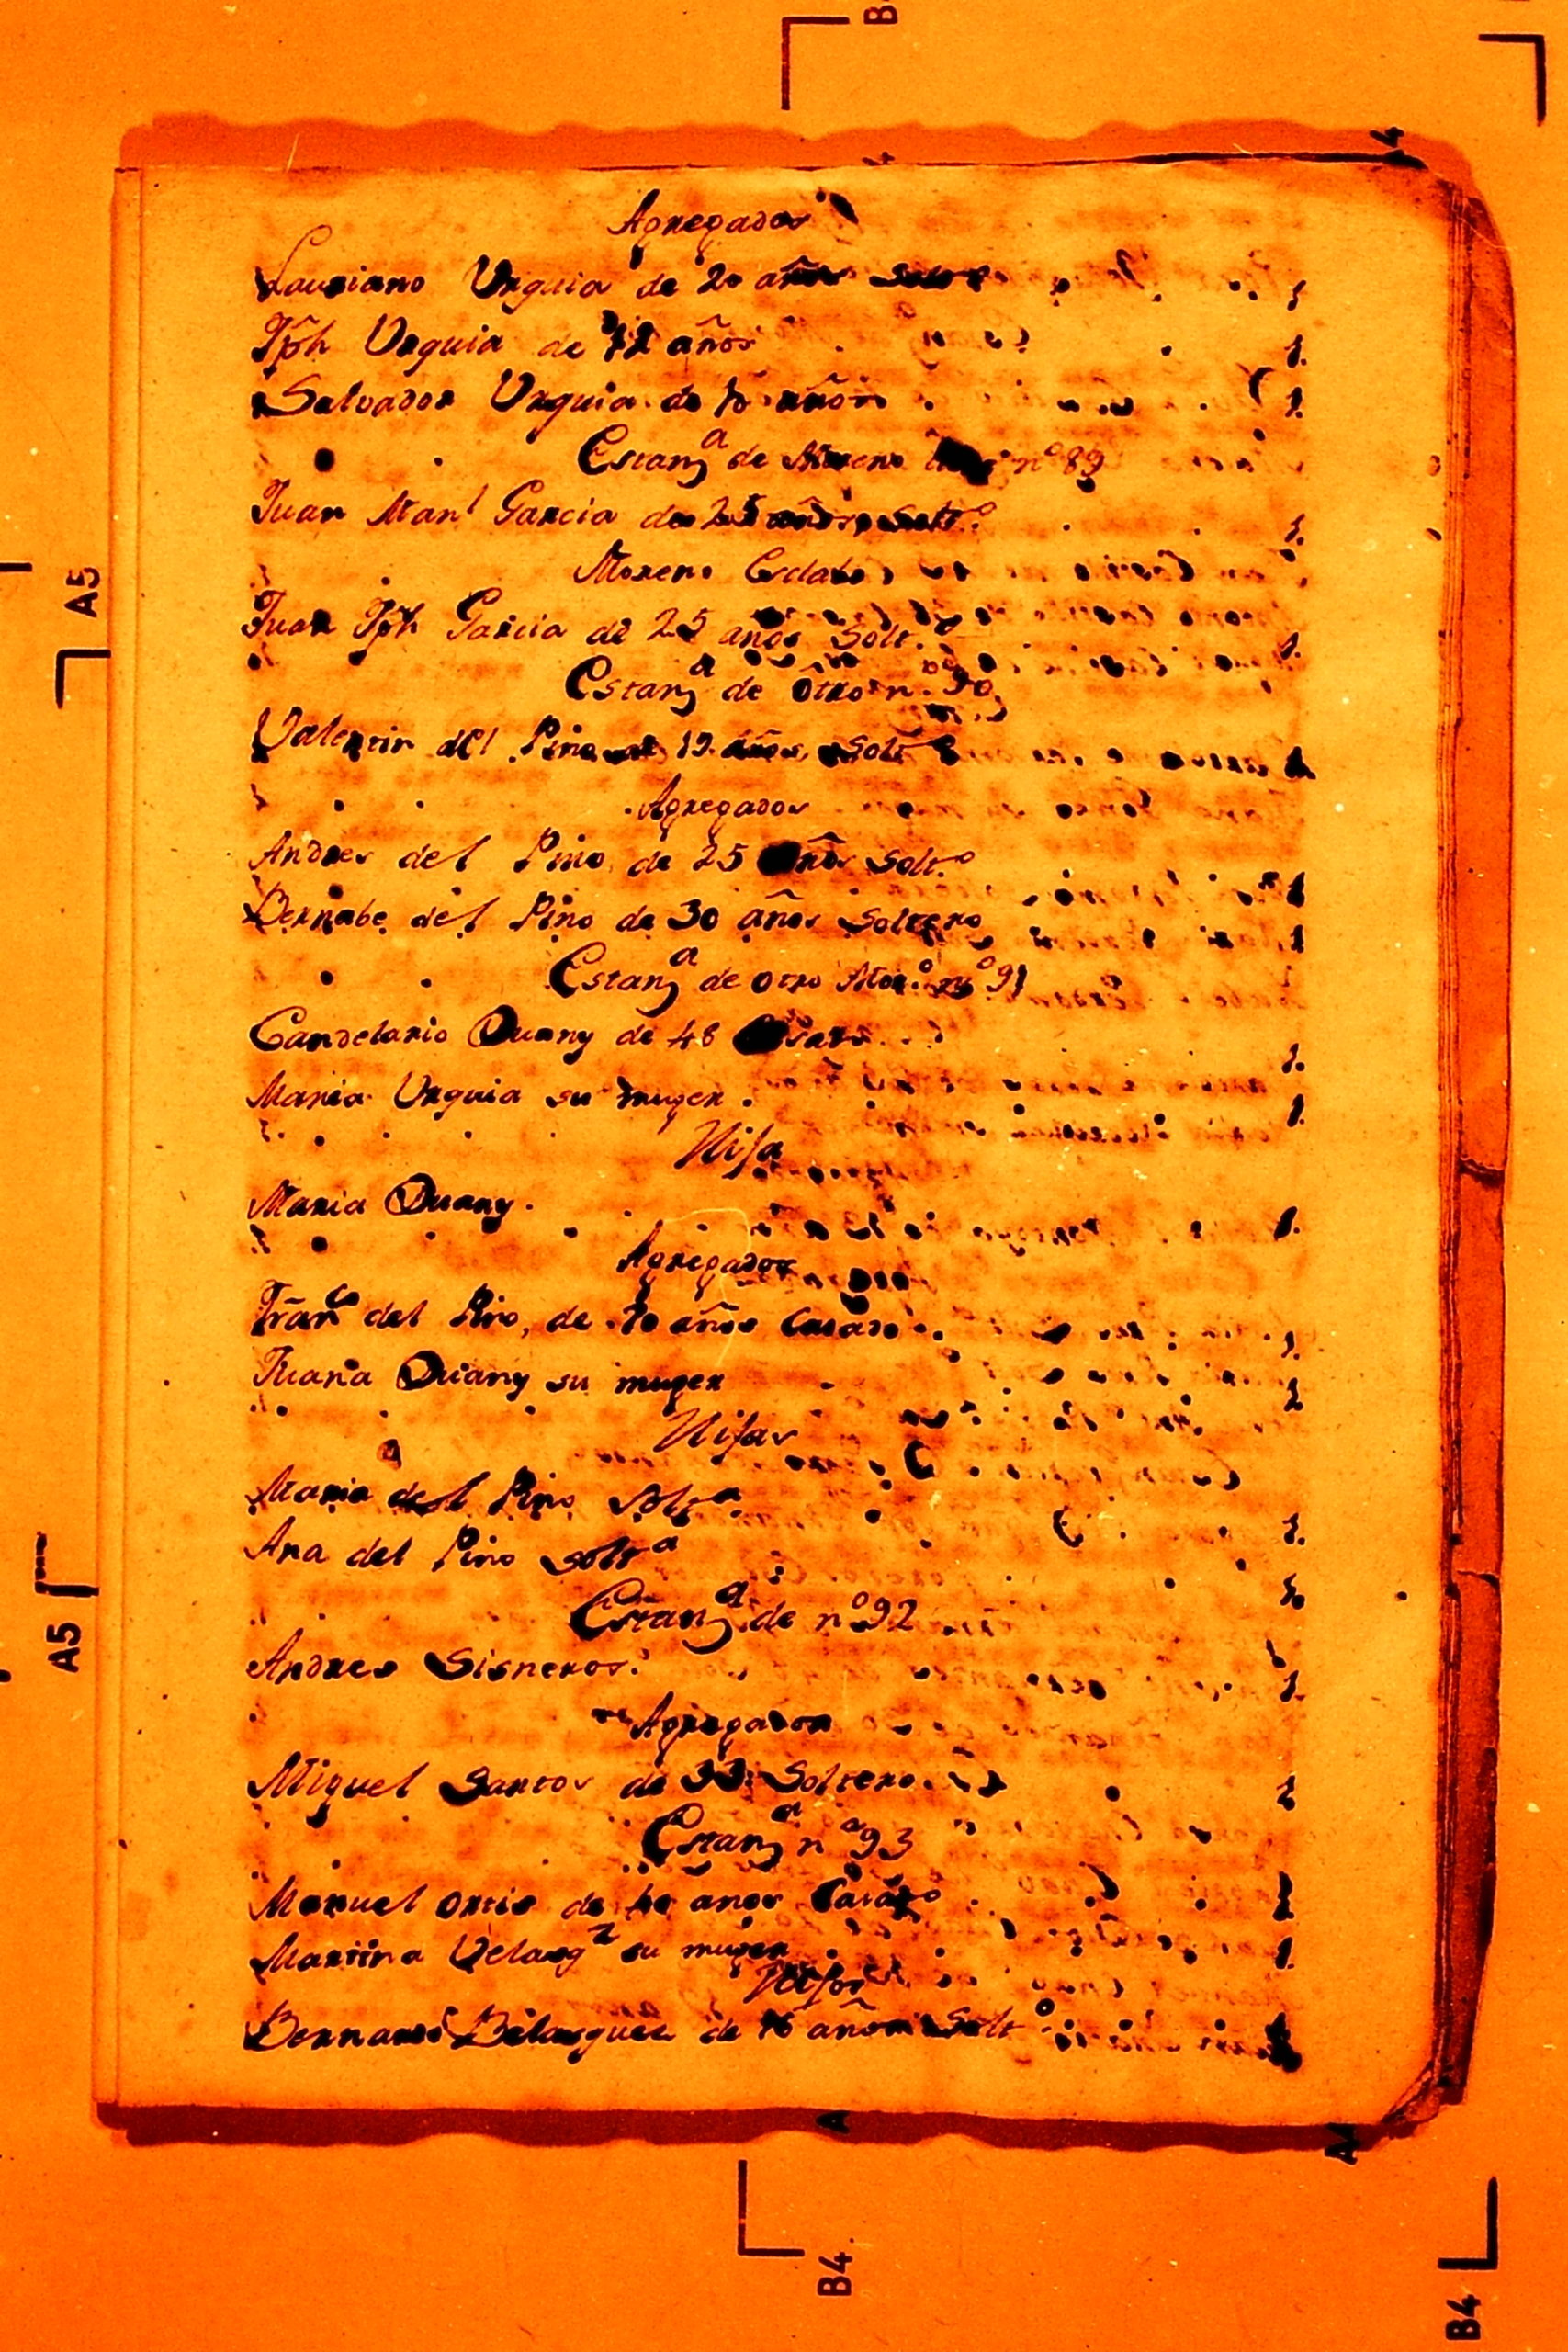 Agregados
Lauriano Urquia de 20 años Solt.o
Jph Urquia de 12 años 1.
Salvador Urquia de 10 años 1.
Estanza de Moreno nº 89
Juan Manl Garcia de 25 años Solt.o 1.
Moreno Esclabo
Juan Jph Garcia de 25 años Solt.o 1.
Estanza de otro n.º 90
Valentin del Pino de 19 años, Solt.o 1
Agregados
Andres del Pino, de 25 años Solt.o 1
Bernabe del Pino de 30 años Soltero 1
Estanza de otro Mor.o nº 91
Candelario Duany de 48 1.
Maria Urquia su muger. 1.
Hija
Maria Duany. 1.
Agregados
Franco del Pino, de 70 años Casado 1.
Juana Duany su muger 1
Hijas
Maria del Pino Solta 1.
Ana del Pino solta
Estanza de nº 92
Andres Sisneros. 1.
Agregados
Miguel Santos de 33 Soltero. 1
Estanza nº 93
Manuel Ortis de años Casado 1
Martina Velasqz su muger 1.
Hijos
Bernardo Belasquez de 16 años Solto 1